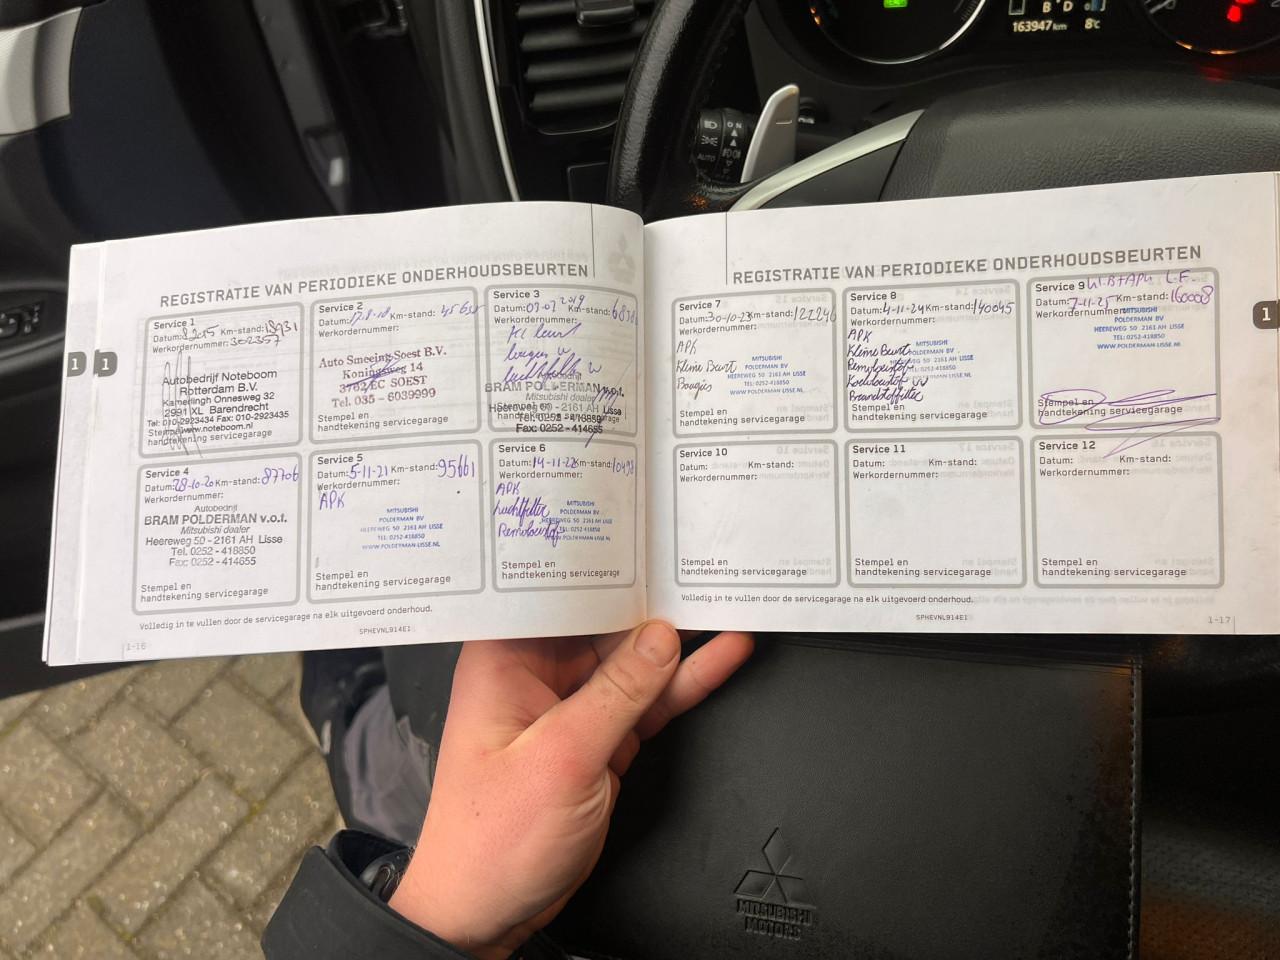 B D
163947 km 8°C
ON
AUTO
REGISTRATIE VAN PERIODIEKE ONDERHOUDSBEURTEN
Service 1
Datum: Km-stand: 18931
Werkordernummer: 302357
Autobedrijf Noteboom
Rotterdam B.V.
Kamerlingh Onnesweg 32
2991 XL Barendrecht
Tel: 010-2923434 Fax: 010-2923435
www.noteboom.nl
handtekening servicegarage
Service 2
Datum: Km-stand:
Werkordernummer:
Auto Smeeing Soest B.V.
Koningsweg 14
3762 EC SOEST
Tel. 035 - 6039999
Stempel en
handtekening servicegarage
Service 3
Datum: Km-stand:
Werkordernummer:
BRAM POLDERMAN v.o.f.
Mitsubishi dealer
Heereweg 50 - 2161 AH Lisse
Tel. 0252 - 418850
Fax: 0252 - 414655
Service 4
Datum: 28-10-20 Km-stand: 87706
Werkordernummer:
Autobedrijf
BRAM POLDERMAN v.o.f.
Mitsubishi dealer
Heereweg 50 - 2161 AH Lisse
Tel. 0252 - 418850
Fax: 0252 - 414655
Stempel en
handtekening servicegarage
Service 5
Datum: 5-11-21 Km-stand: 95661
Werkordernummer:
APK
MITSUBISHI
POLDERMAN BV
HEEREWEG 50 2161 AH LISSE
TEL: 0252-418850
WWW.POLDERMAN-LISSE.NL
Stempel en
handtekening servicegarage
Service 6
Datum: 14-11-22 Km-stand:
Werkordernummer:
APK
Luchtfilter
Remvloeistof
MITSUBISHI
POLDERMAN BV
HEEREWEG 50 2161 AH LISSE
TEL: 0252-418850
WWW.POLDERMAN-LISSE.NL
Stempel en
handtekening servicegarage
Volledig in te vullen door de servicegarage na elk uitgevoerd onderhoud.
SPHEVNL914E1
1-16
REGISTRATIE VAN PERIODIEKE ONDERHOUDSBEURTEN
Service 7
Datum: 30-10-23 Km-stand: 122246
Werkordernummer:
APK
Kleine Beurt
Bougies
MITSUBISHI
POLDERMAN BV
HEEREWEG 50 2161 AH LISSE
TEL: 0252-418850
WWW.POLDERMAN-LISSE.NL
Stempel en
handtekening servicegarage
Service 8
Datum: 4-11-24 Km-stand: 140045
Werkordernummer:
APK
Kleine Beurt
Remvloeistof
Koelvloeistof
Brandstoffilter
MITSUBISHI
POLDERMAN BV
HEEREWEG 50 2161 AH LISSE
TEL: 0252-418850
WWW.POLDERMAN-LISSE.NL
Stempel en
handtekening servicegarage
Service 9
Datum: 7-11-25 Km-stand: 160008
Werkordernummer:
MITSUBISHI
POLDERMAN BV
HEEREWEG 50 2161 AH LISSE
TEL: 0252-418850
WWW.POLDERMAN-LISSE.NL
Stempel en
handtekening servicegarage
Service 10
Datum: Km-stand:
Werkordernummer:
Stempel en
handtekening servicegarage
Service 11
Datum: Km-stand:
Werkordernummer:
Stempel en
handtekening servicegarage
Service 12
Datum: Km-stand:
Werkordernummer:
Stempel en
handtekening servicegarage
Volledig in te vullen door de servicegarage na elk uitgevoerd onderhoud.
SPHEVNL914E1
1-17
1
1
1
MITSUBISHI
MOTORS